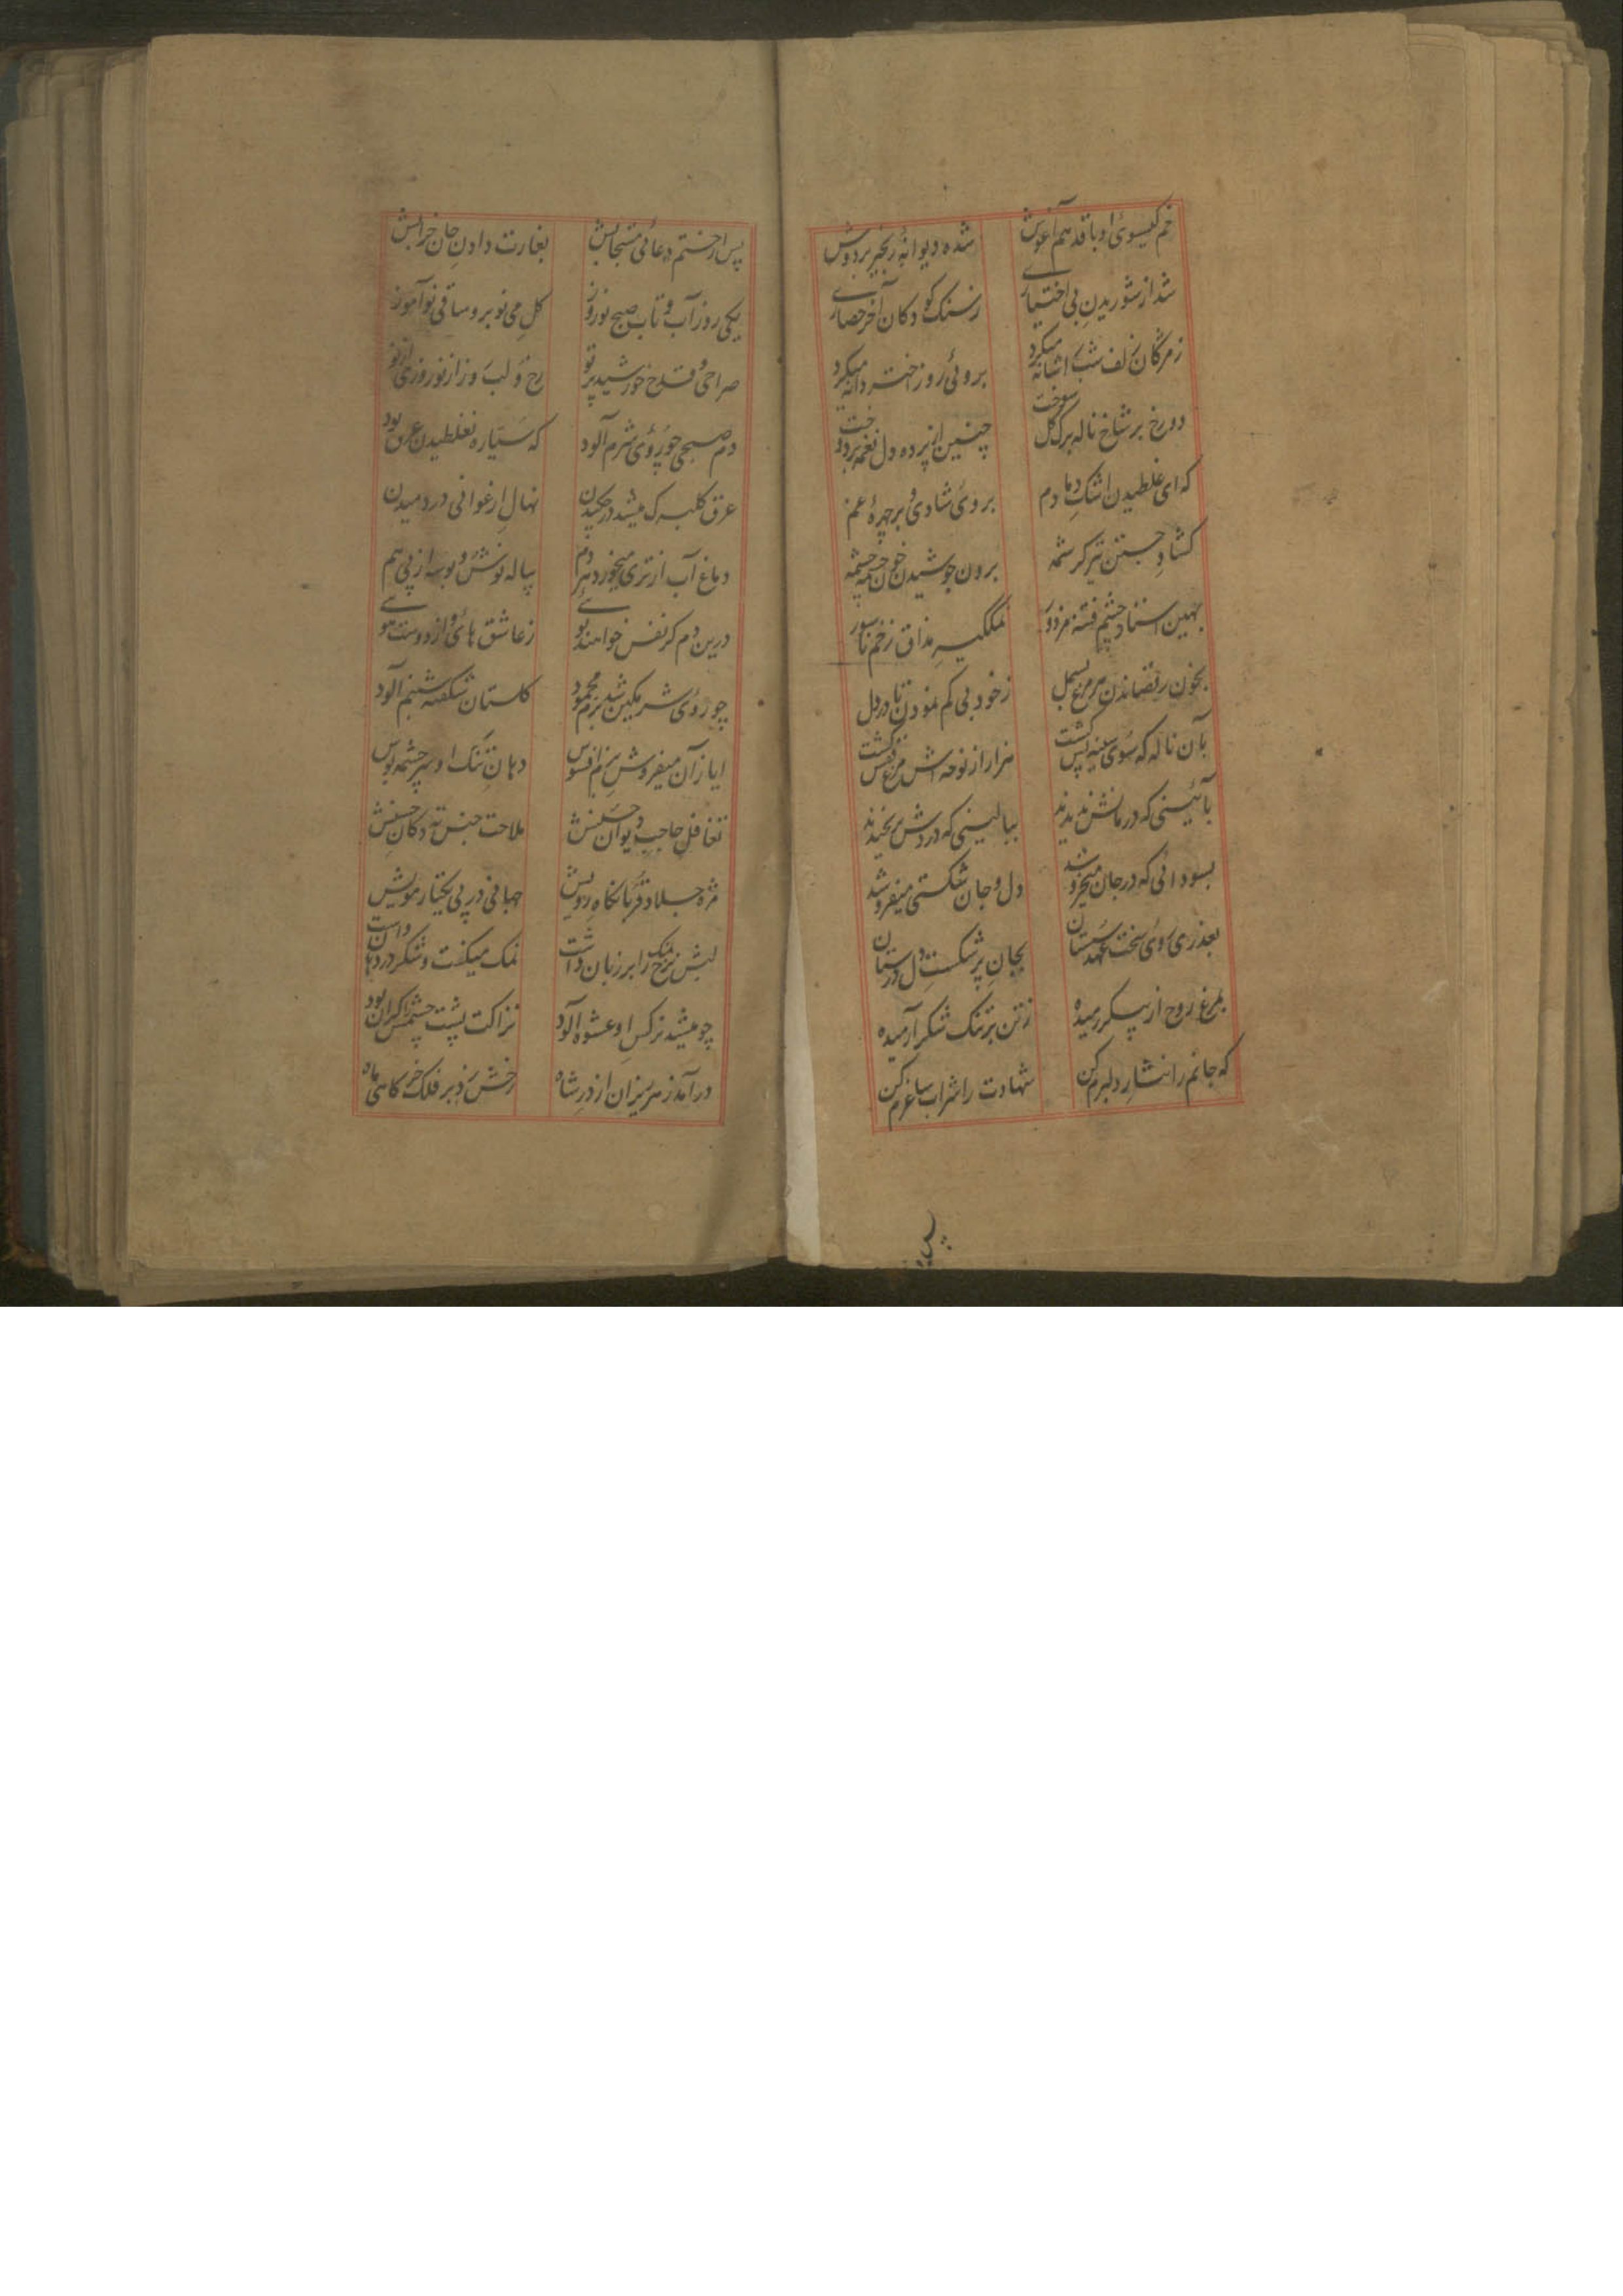 خم گیسوی او با قد هم آغوش
شده دیوانهٔ زنجیر بردوش
شد از شوریدن بی اختیاری
زسنک کودکان آخر حصاری
زمژگان زلف شب را شانه میکرد
بروئی روز اختر دانه میکرد
دو رخ بر شاخ ناله برک گل سوخت
چنین از پرده دل نغمه بردوخت
که ای غلطیدن اشک دمادم
بروی شادی و بر چهرهٔ غم
کشاد جستن تیر کرشمه
برون جوشیدن خون چشمه چشمه
بهین استاد چشم فتنه مزدور
نمکگیر مذاق زخم ناسور
بخون رقصاندن مرمرغ بسمل
زخود بی کم نمودن تا در دل
بآن ناله که سوی سینه پس کشت
هزار از نوحه اش مرغ قفس کشت
بآئینی که درمانش ندیدند
ببالینی که دردش برنخیدند
بسودائی که در جان میخروشد
دل و جان شکستی میفروشد
بعذری روی سخت عهد سستان
بجان پر شکست دل درستان
بمرغ روح از پیکر رمیده
زتن بر تنک شکر آرمیده
که جانم را نثار دلبرم کن
شهادت را شراب ساغرم کن
پس از ختم دعائی مستجابش
بغارت دادن جان خرابش
یکی روز آب و تاب صبح نوروز
کل می نوبر و ساقی نوآموز
صراحی و قدح خورشید پرتو
رخ و لب روز از نوروزی از نو
دم صبحی چو روی شرم آلود
که سیاره بغلطیدن عرق بود
عرق کلبرک میشد در چکیدن
نهال ارغوانی در دمیدن
دماغ آب از تری میخورد بر دم
پیاله نوش و بوسه از پی هم
درین دم کز نفس خواهند بوئی
زعاشق های و از دوست هوئی
چو روی شرمکین شد بزم محمود
کلستان شکفته شبنم آلود
ایاز آن میفروش بزم افسوس
دهان تنک او سرچشمه بوس
تغافل حاجب دیوان حسنش
ملاحت جنس ته دکان حسنش
مژه جلاد قربانکاه رویش
جهانی در پی یکتار مویش
لبش نرخ نمک را بر زبان داشت
نمک میکفت و شکر در دهان داشت
چو میشد نرکس او عشوه آلود
نزاکت پشت چشمش را کران بود
درآمد زمر یزان از در شاه
رخش زد بر فلک خرکاهی ماه